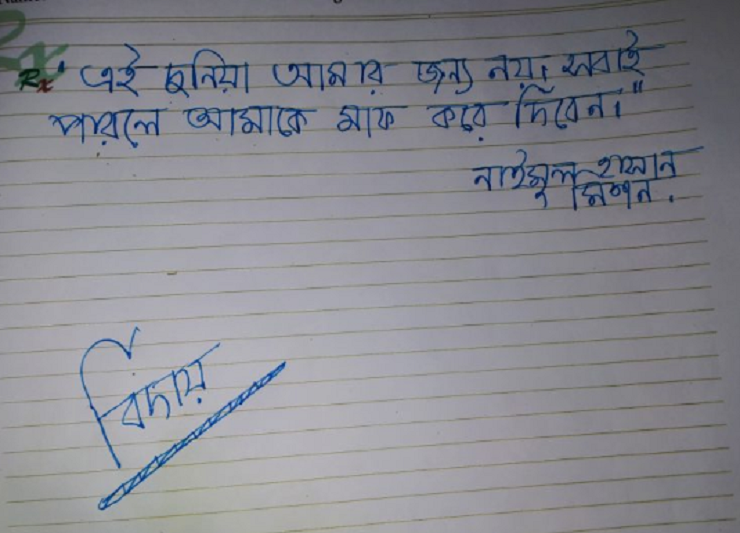 Rx "এই দুনিয়া আমার জন্য নয়। সবাই
পারলে আমাকে মাফ করে দিবেন।"
নাইমুল হাসান
মিশন.
বিদায়